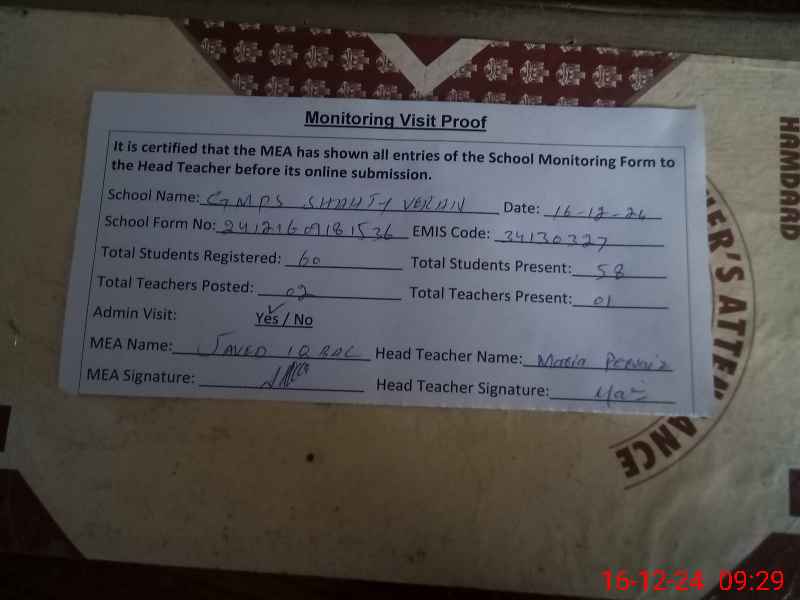 Monitoring Visit Proof
It is certified that the MEA has shown all entries of the School Monitoring Form to
the Head Teacher before its online submission.
School Name: GMPS SHAHTY VERAIN Date: 16-12-24
School Form No: 24121609181536 EMIS Code: 34130327
Total Students Registered: 60 Total Students Present: 58
Total Teachers Posted: 02 Total Teachers Present: 01
Admin Visit: Yes / No
MEA Name: JAVED IQBAL Head Teacher Name: Maria Pervaiz
MEA Signature: Head Teacher Signature:
HAMDARD
ER'S ATTEN
ANCE
16-12-24 09:29